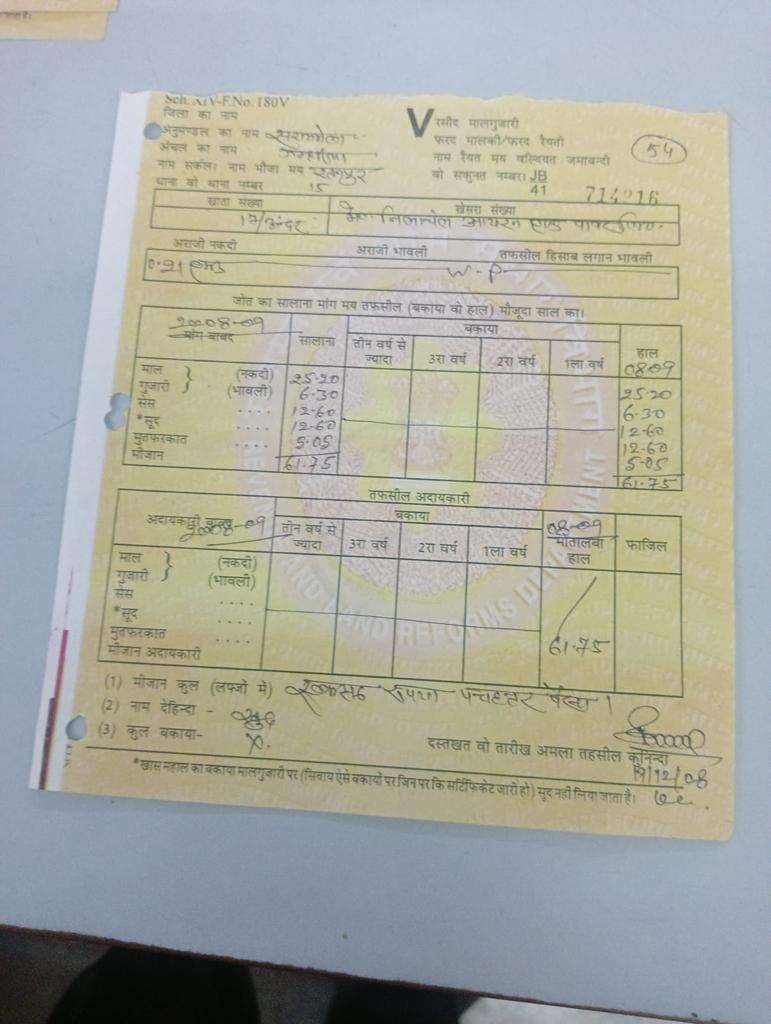 Sch. XIV-F.No. 180V
जिला का नाम
अनुमण्डल का नाम सरायकेला
अंचल का नाम गम्हरिया
नाम सर्कल। नाम मौजा मय रतनपुर
थाना वो थाना नम्बर 15
V रसीद मालगुजारी
फरद मालकी/फरद रैयती
नाम रैयत मय वल्दियत जमाबन्दी
वो सकुनत नम्बर। JB
41 714216
54
खाता संख्या खेसरा संख्या
17/
अराजी नकदी अराजी भावली तफसील हिसाब लगान भावली
0.21 W.P.
जोत का सालाना मांग मय तफसील (बकाया वो हाल) मौजूदा साल का।
2008-09
मांग बाबद सालाना बकाया हाल
तीन वर्ष से ज्यादा 3रा वर्ष 2रा वर्ष 1ला वर्ष 08-09
माल (नकदी) 25.20 25.20
गुजारी (भावली) 6.30 6.30
सेस .... 12.60 12.60
*सूद .... 12.60 12.60
मुतफरकात .... 5.05 5.05
मीजान 61.75 61.75
तफसील अदायकारी
अदायकारी 2008-09 बकाया 08-09
तीन वर्ष से ज्यादा 3रा वर्ष 2रा वर्ष 1ला वर्ष मोतालबा हाल फाजिल
माल (नकदी)
गुजारी (भावली)
सेस ....
*सूद ....
मुतफरकात ....
मीजान अदायकारी 61.75
(1) मीजान कुल (लफ्जों में) एकसठ रुपया पचहत्तर पैसा।
(2) नाम देहिन्दा - खुद
(3) कुल बकाया- X.
दस्तखत वो तारीख अमला तहसील कुनिन्दा
19/12/08
*खास महाल का बकाया मालगुजारी पर (सिवाय ऐसे बकायों पर जिन पर कि सर्टिफिकेट जारी हो) सूद नहीं लिया जाता है।